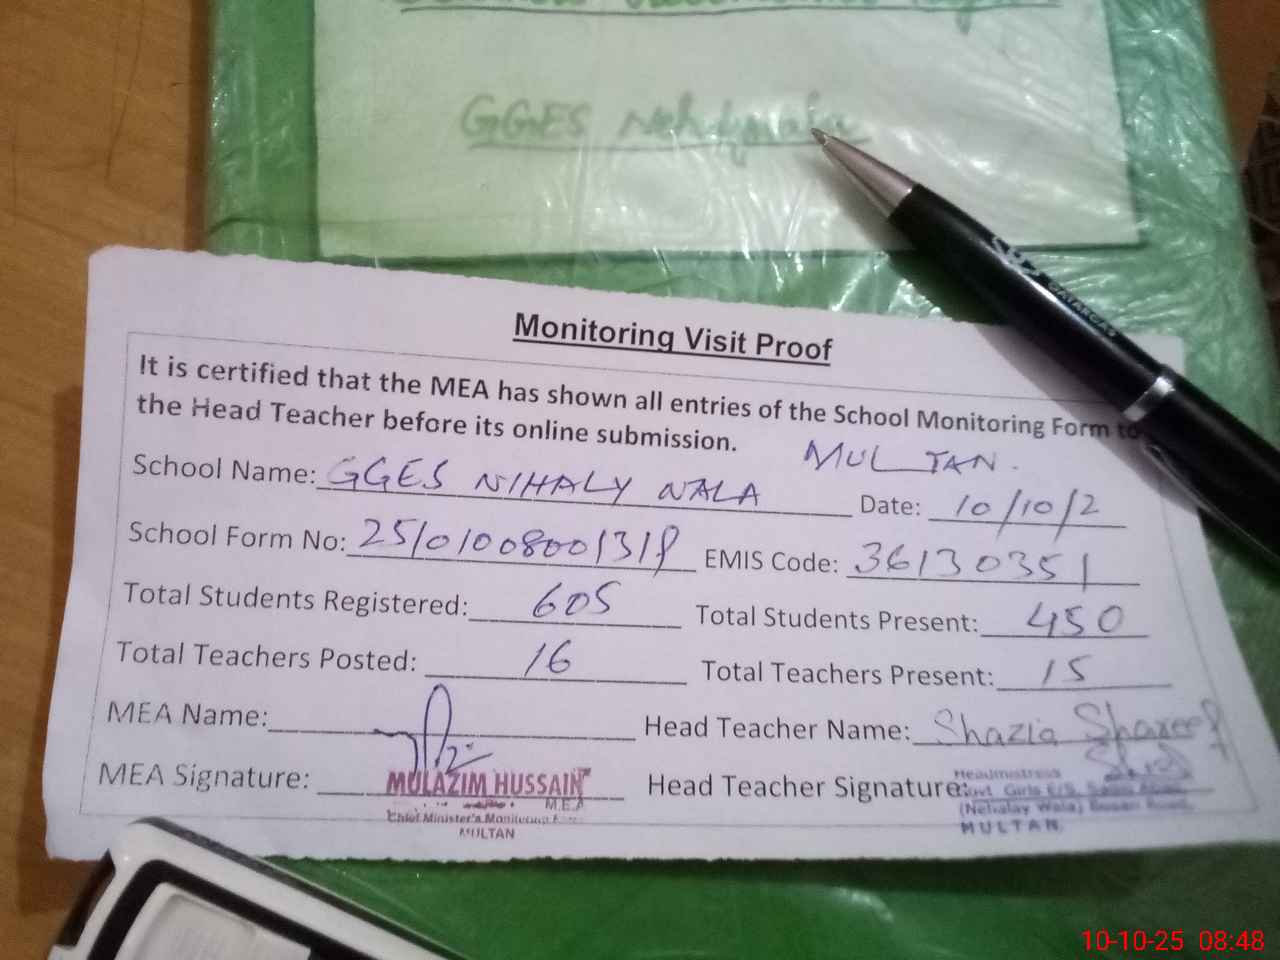 GGES
Monitoring Visit Proof
It is certified that the MEA has shown all entries of the School Monitoring Form to
the Head Teacher before its online submission.
MULTAN.
School Name: GGES NIHALY NALA Date: 10/10/2
School Form No: 25/0100800131 EMIS Code: 36130351
Total Students Registered: 605 Total Students Present: 450
Total Teachers Posted: 16 Total Teachers Present: 15
MEA Name: Head Teacher Name: Shazia Shareef
MEA Signature: Head Teacher Signature:
MULAZIM HUSSAIN
M.E.A
Chief Minister's Monitoring
MULTAN
Headmistress
Govt Girls E/S,
(Nehalay Wala) Bosan Road,
MULTAN
10-10-25 08:48